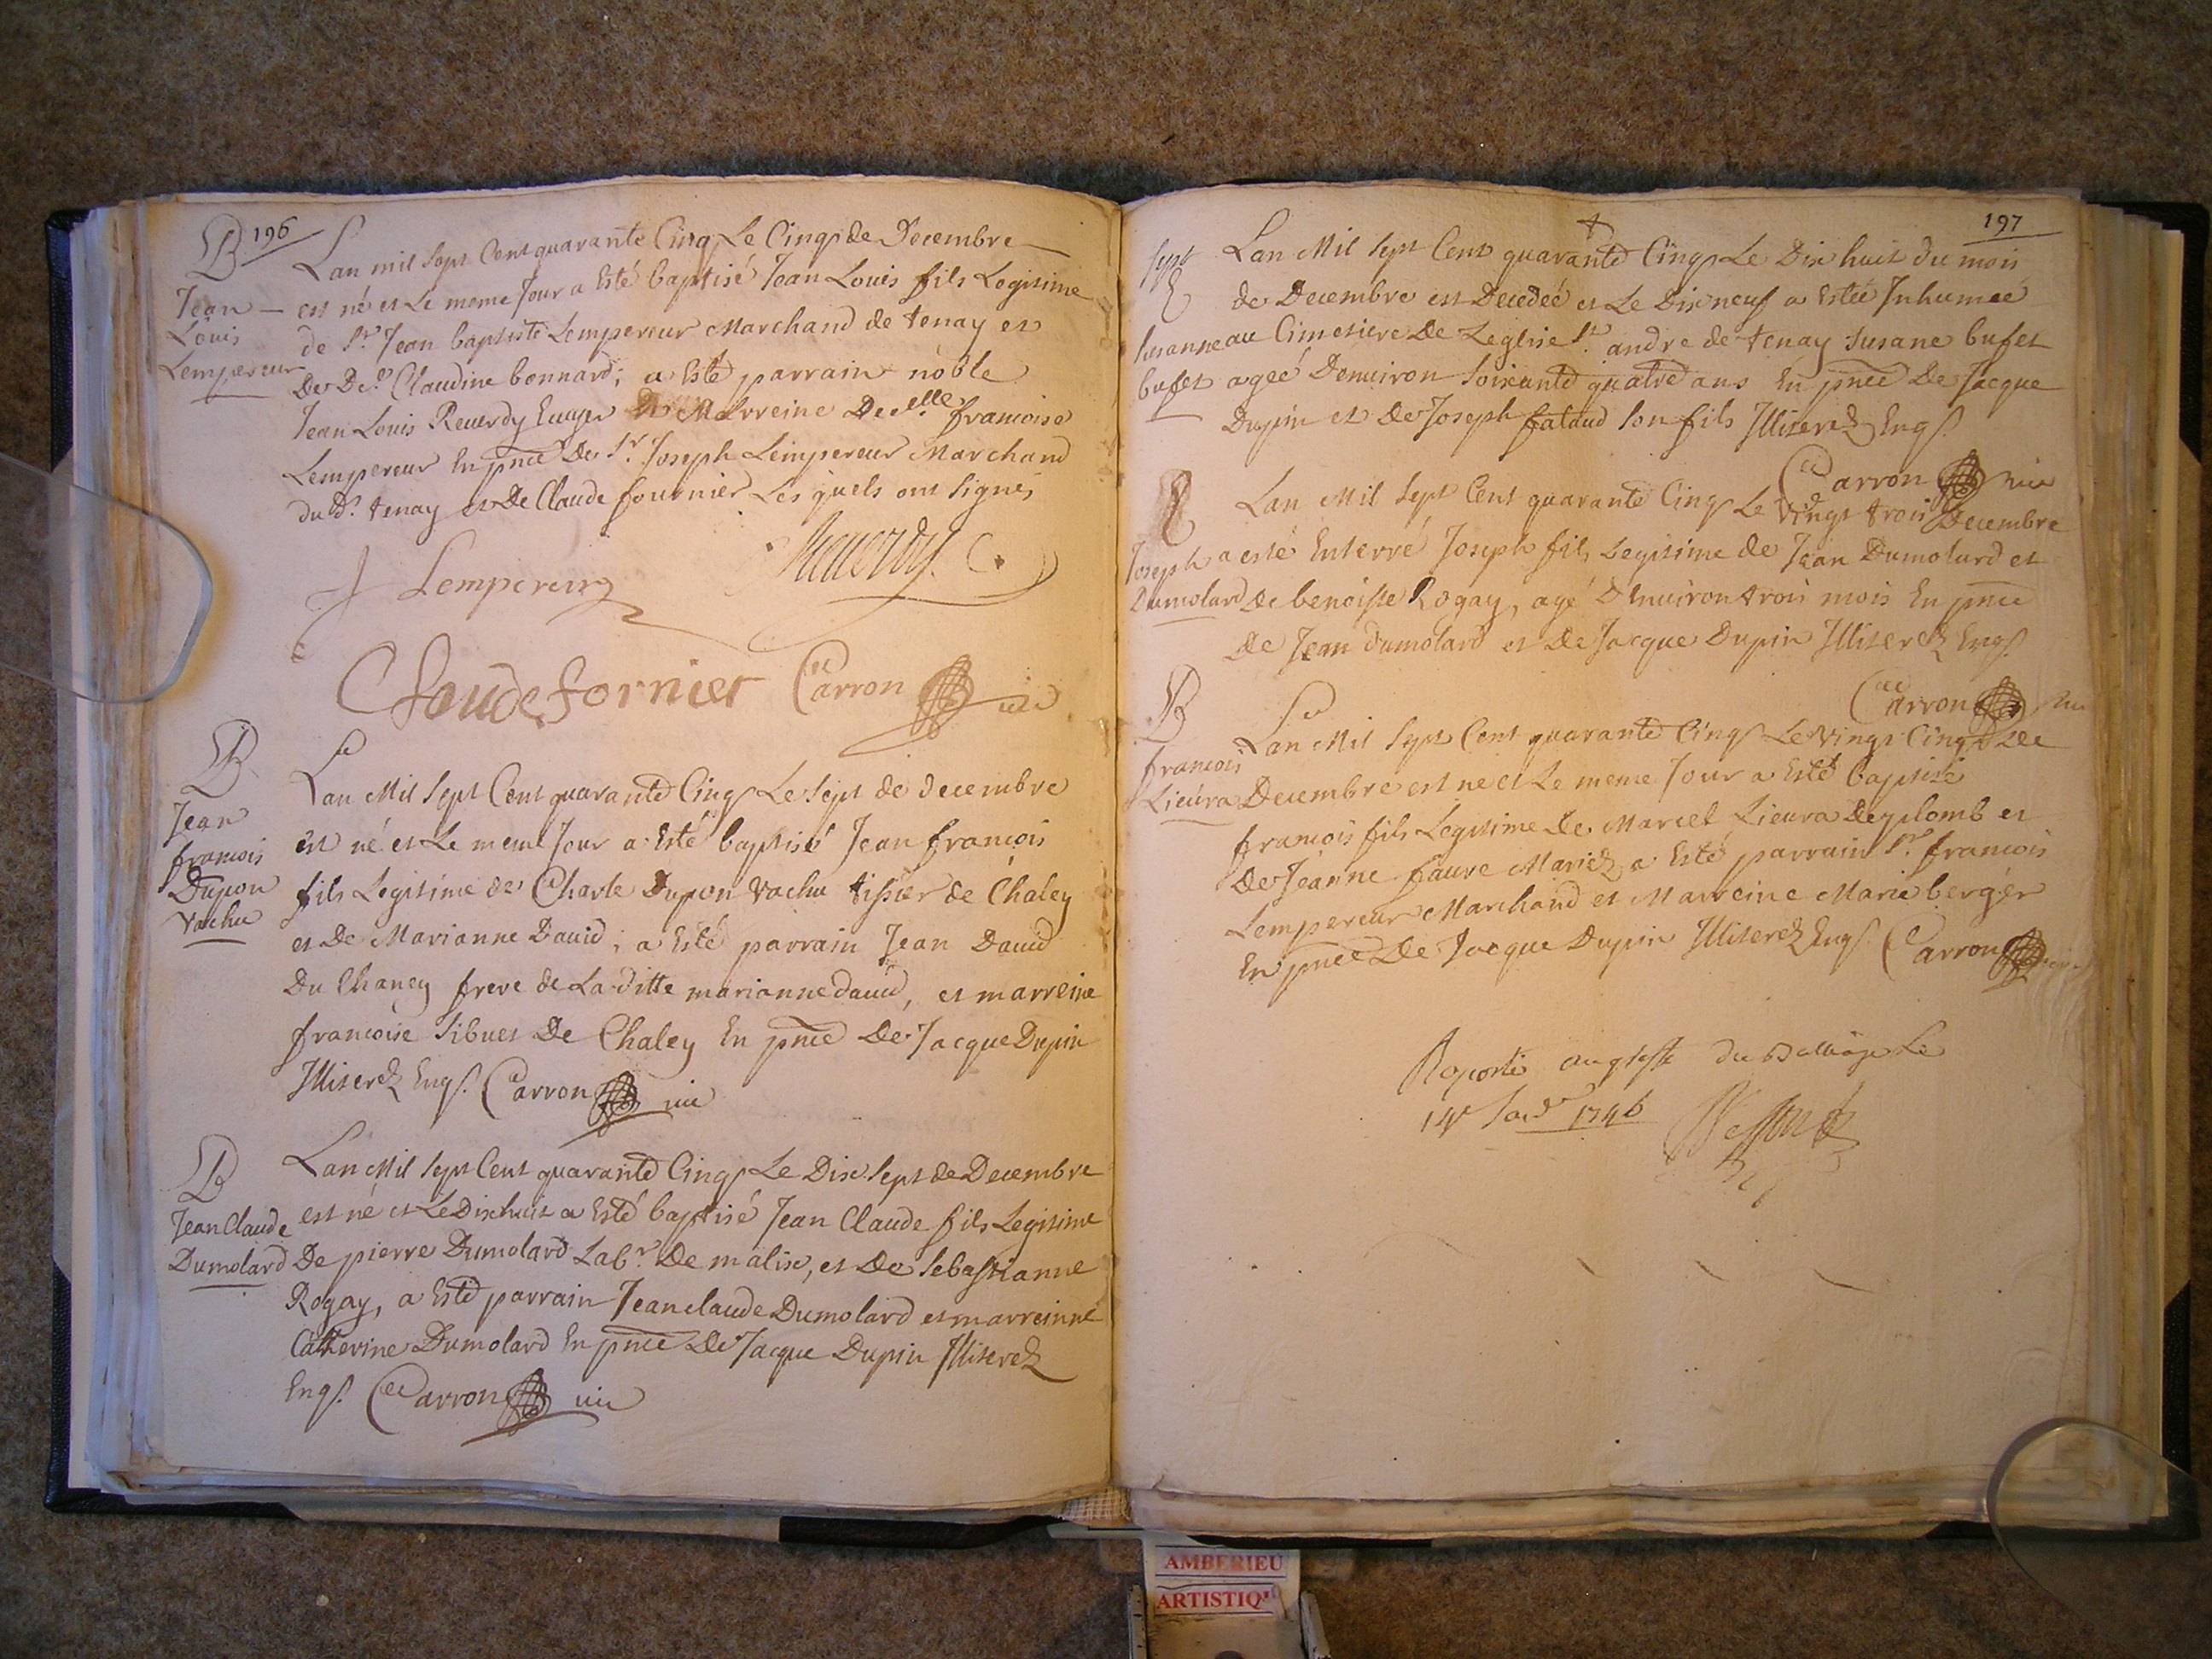 196
B
Jean
Louis
Lempereur
Lan mil sept Cent quarante Cinq Le Cinq de Decembre
est né et Le meme Jour a Esté baptisé Jean Louis fils Legitime
de Sr. Jean baptiste Lempereur Marchand de tenay et
De De.lle Claudine bonnard; a Esté parrain noble
Jean Louis Reuerdy Ecuyer et Marreine Deelle francoise
Lempereur En pnce De Sr. Joseph Lempereur Marchand
dud. tenay et De Claude fournier Les quels ont signés
Lempereur Reuerdy
Claude fornier Carron
B
Jean
francois
Dupon
Vachu
Lan Mil Sept Cent quarante Cinq Le Sept de decembre
est né et Le meme Jour a Esté baptisé Jean francois
fils Legitime de Charle Dupon Vachu tissier de Chaley
et De Marianne Dauid; a Esté parrain Jean Dauid
Du Chaney frere de La ditte marianne dauid, et marreine
francoise Sibuet De Chaley En pnce De Jacque Dupin
Illiterez Enqs. Carron
B
Jean Claude
Dumolard
Lan Mil Sept Cent quarante Cinq Le Dix Sept de Decembre
est né et Le Dixhuit a Esté baptisé Jean Claude fils Legitime
De pierre Dumolard Labr. De malix, et De Sebastianne
Rogay, a Esté parrain Jean claude Dumolard et marreinne
Catherine Dumolard En pnce De Jacque Dupin Illiterez
Enqs. Carron
197
Susanne
bufet
Lan Mil Sept Cent quarante Cinq Le Dix huit du mois
de Decembre est Decedeé et Le Dixneuf a Esteé Inhumeé
au Cimetiere De Leglise St. andre de tenay Susane bufet
ageé Denuiron Soixante quatre ans En pnce De Jacque
Dupin et De Joseph fataud Son fils Illiterez Enqs.
Carron
Joseph
Dumolard
Lan Mil Sept Cent quarante Cinq Le Vingt trois Decembre
a esté Enterré Joseph fils Legitime de Jean Dumolard et
De benoiste Rogay, agé DEnuiron trois mois En pnce
De Jean dumolard et De Jacque Dupin Illiterez Enqs
Carron
B
francois
Lieura
Lan Mil Sept Cent quarante Cinq Le Vingt Cinq De
Decembre est ne et Le meme Jour a Esté baptisé
francois fils Legitime De Marcel Lieura Deplomb et
De Jeanne faure Mariez a Esté parrain Sr. francois
Lempereur Marchand et Marreine Marie berger
En pnce De Jacque Dupin Illiterez Enqs. Carron
Raporté au greffe du Balliage Le
14e Janr. 1746
AMBERIEU
ARTISTIQ